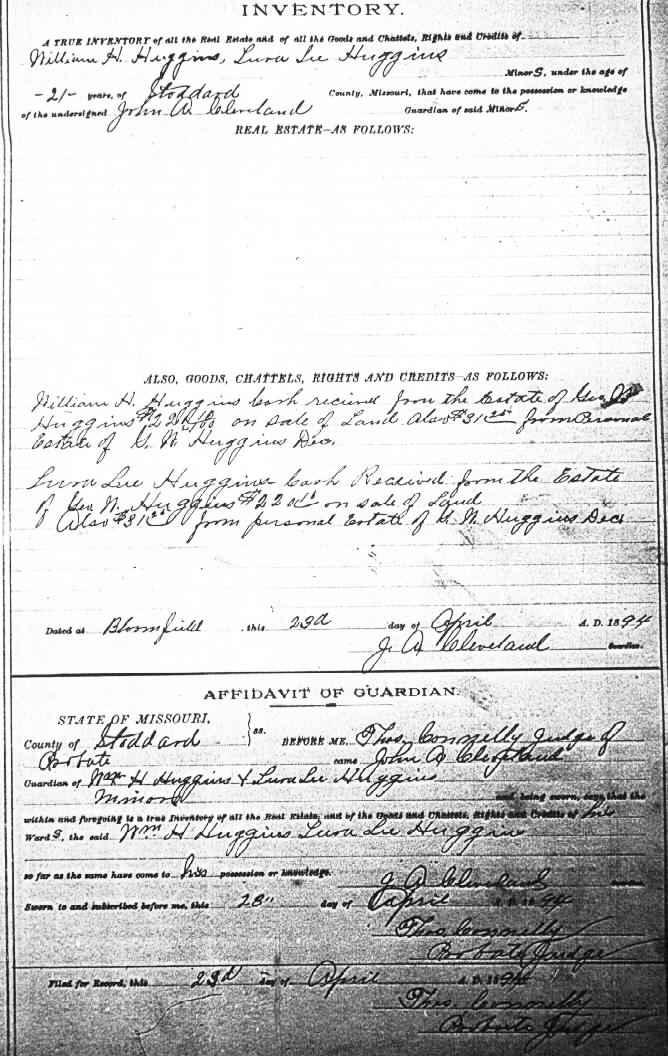 INVENTORY.
A TRUE INVENTORY of all the Real Estate and of all the Goods and Chattels, Rights and Credits of
William H. Huggins, Lura Lee Huggins
MinorS, under the age of
-21- years, of Stoddard County, Missouri, that have come to the possession or knowledge
of the undersigned John A. Cleveland Guardian of said MinorS.
REAL ESTATE—AS FOLLOWS:
ALSO, GOODS, CHATTELS, RIGHTS AND CREDITS—AS FOLLOWS:
William H. Huggins Cash recieved from the Estate of Geo W
Huggins $22 on sale of Land Also $31 from Personal
Estate of G. W. Huggins Dec.
Lura Lee Huggins- Cash Received from the Estate
of Geo. W. Huggins $22 on sale of Land
Also $31 from personal Estate of G. W. Huggins Dec.
Dated at Bloomfield, this 23d day of April A. D. 1894
J. A. Cleveland Guardian.
AFFIDAVIT OF GUARDIAN.
STATE OF MISSOURI,
County of Stoddard } ss. BEFORE ME, Thos. Connelly Judge of
Probate came John A Cleveland
Guardian of Wm H Huggins & Lura Lee Huggins
Minors and being sworn, says that the
within and foregoing is a true Inventory of all the Real Estate, and of the Goods and Chattels, Rights and Credits of his
WardS, the said Wm H Huggins Lura Lee Huggins
so far as the same have come to his possession or knowledge.
J. A. Cleveland Guardian.
Sworn to and subscribed before me, this 23" day of April A. D. 1894
Thos. Connelly
Probate Judge
Filed for Record, this 23d day of April A. D. 1894
Thos. Connelly
Probate Judge